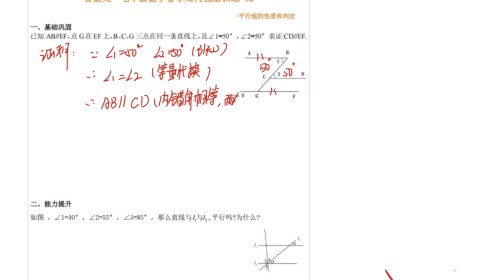 -平行线的性质和判定
一、基础巩固
已知 AB//EF，点 G 在 EF 上，B、C、G 三点在同一条直线上，且∠1=50°，∠2=50° 求证 CD//EF
证明：∵ ∠1=50° ∠2=50° (已知)
∴ ∠1=∠2 (等量代换)
∴ AB∥CD (内错角相等，两
A B
50° 1
C 2 50° D
E G F
二、能力提升
如图，∠1=40°，∠2=55°，∠3=85°，那么直线与 l₁与 l₂,平行吗?为什么?